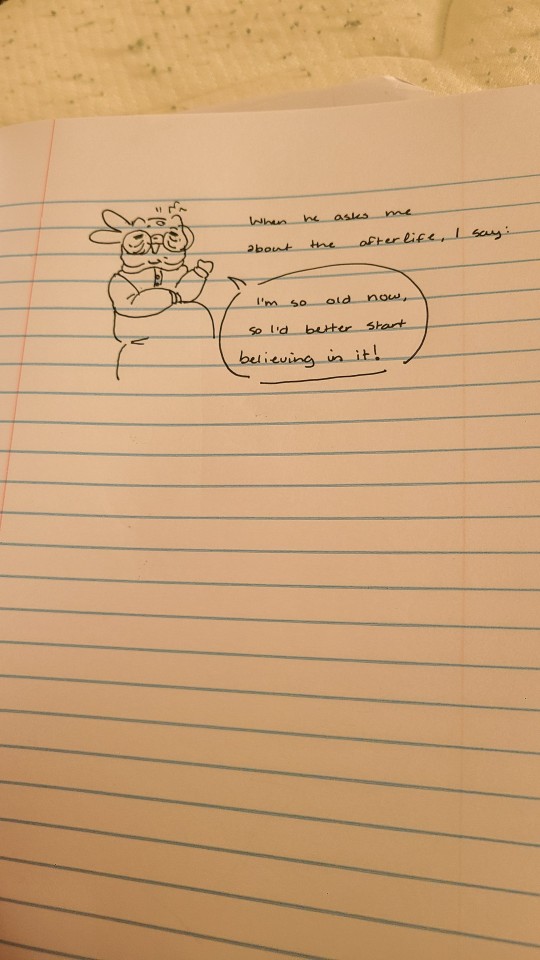 When he asks me
about the afterlife, I say:
I'm so old now,
so I'd better start
believing in it!